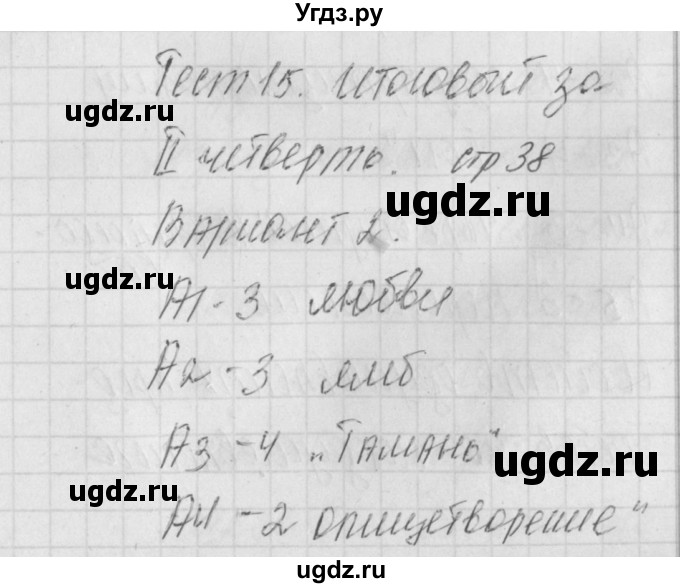 Угдз.ру
Тест 15. Итоговый за
ugdz.ru
II четверть. стр 38
ugdz.ru
Вариант 2.
ugdz.ru
А1 - 3 любви
А2 - 3 ямб
А3 - 4 „Тамань"
ugdz.ru
ugdz.ru
А4 - 2 олицетворение"
ugdz.ru